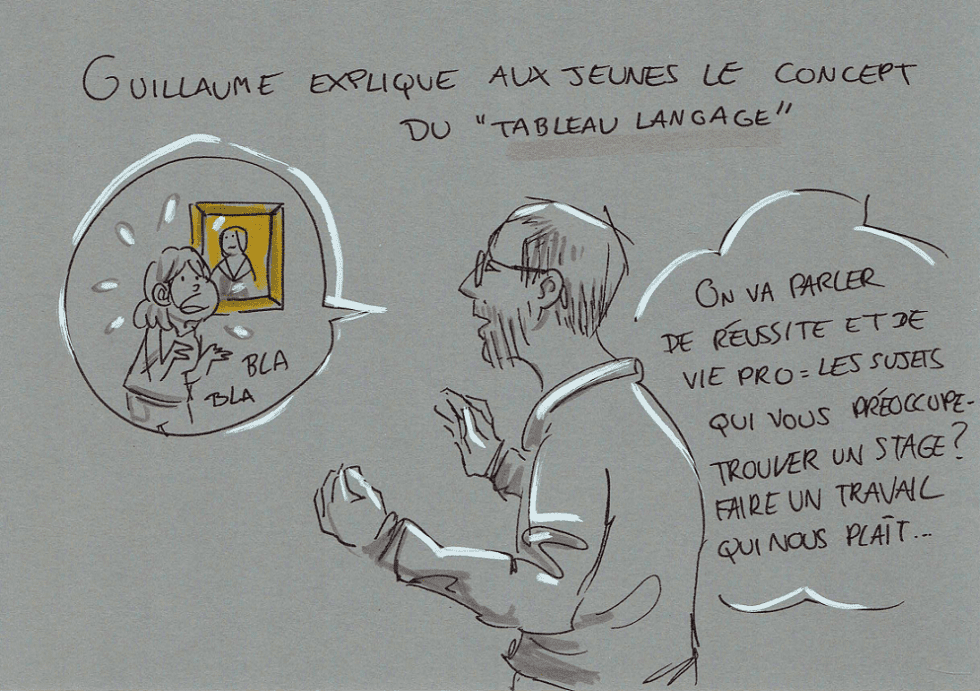 GUILLAUME EXPLIQUE AUX JEUNES LE CONCEPT
DU "TABLEAU LANGAGE"
BLA
BLA
ON VA PARLER
DE RÉUSSITE ET DE
VIE PRO = LES SUJETS
QUI VOUS PRÉOCCUPE-
TROUVER UN STAGE?
FAIRE UN TRAVAIL
QUI NOUS PLAÎT...